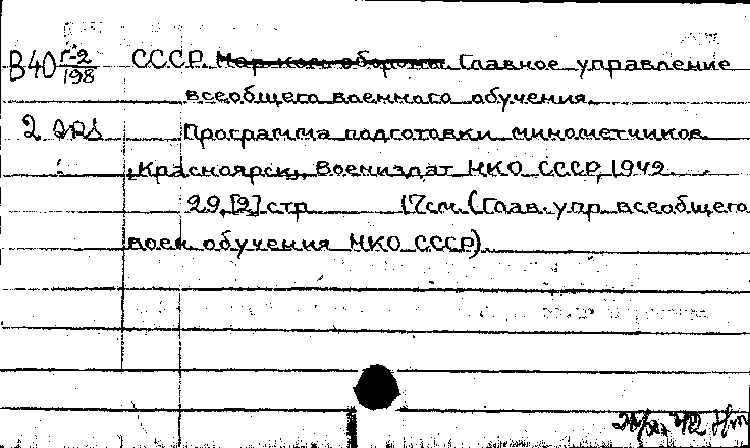 В40 Г-2/198 СССР. Нар. ком. обороны. Главное управление
всеобщего военного обучения.
2 экз Программа подготовки минометчиков.
[Красноярск], Воениздат НКО СССР, 1942.
29, [2] стр. 17 см. (Глав. упр. всеобщего
воен. обучения НКО СССР).